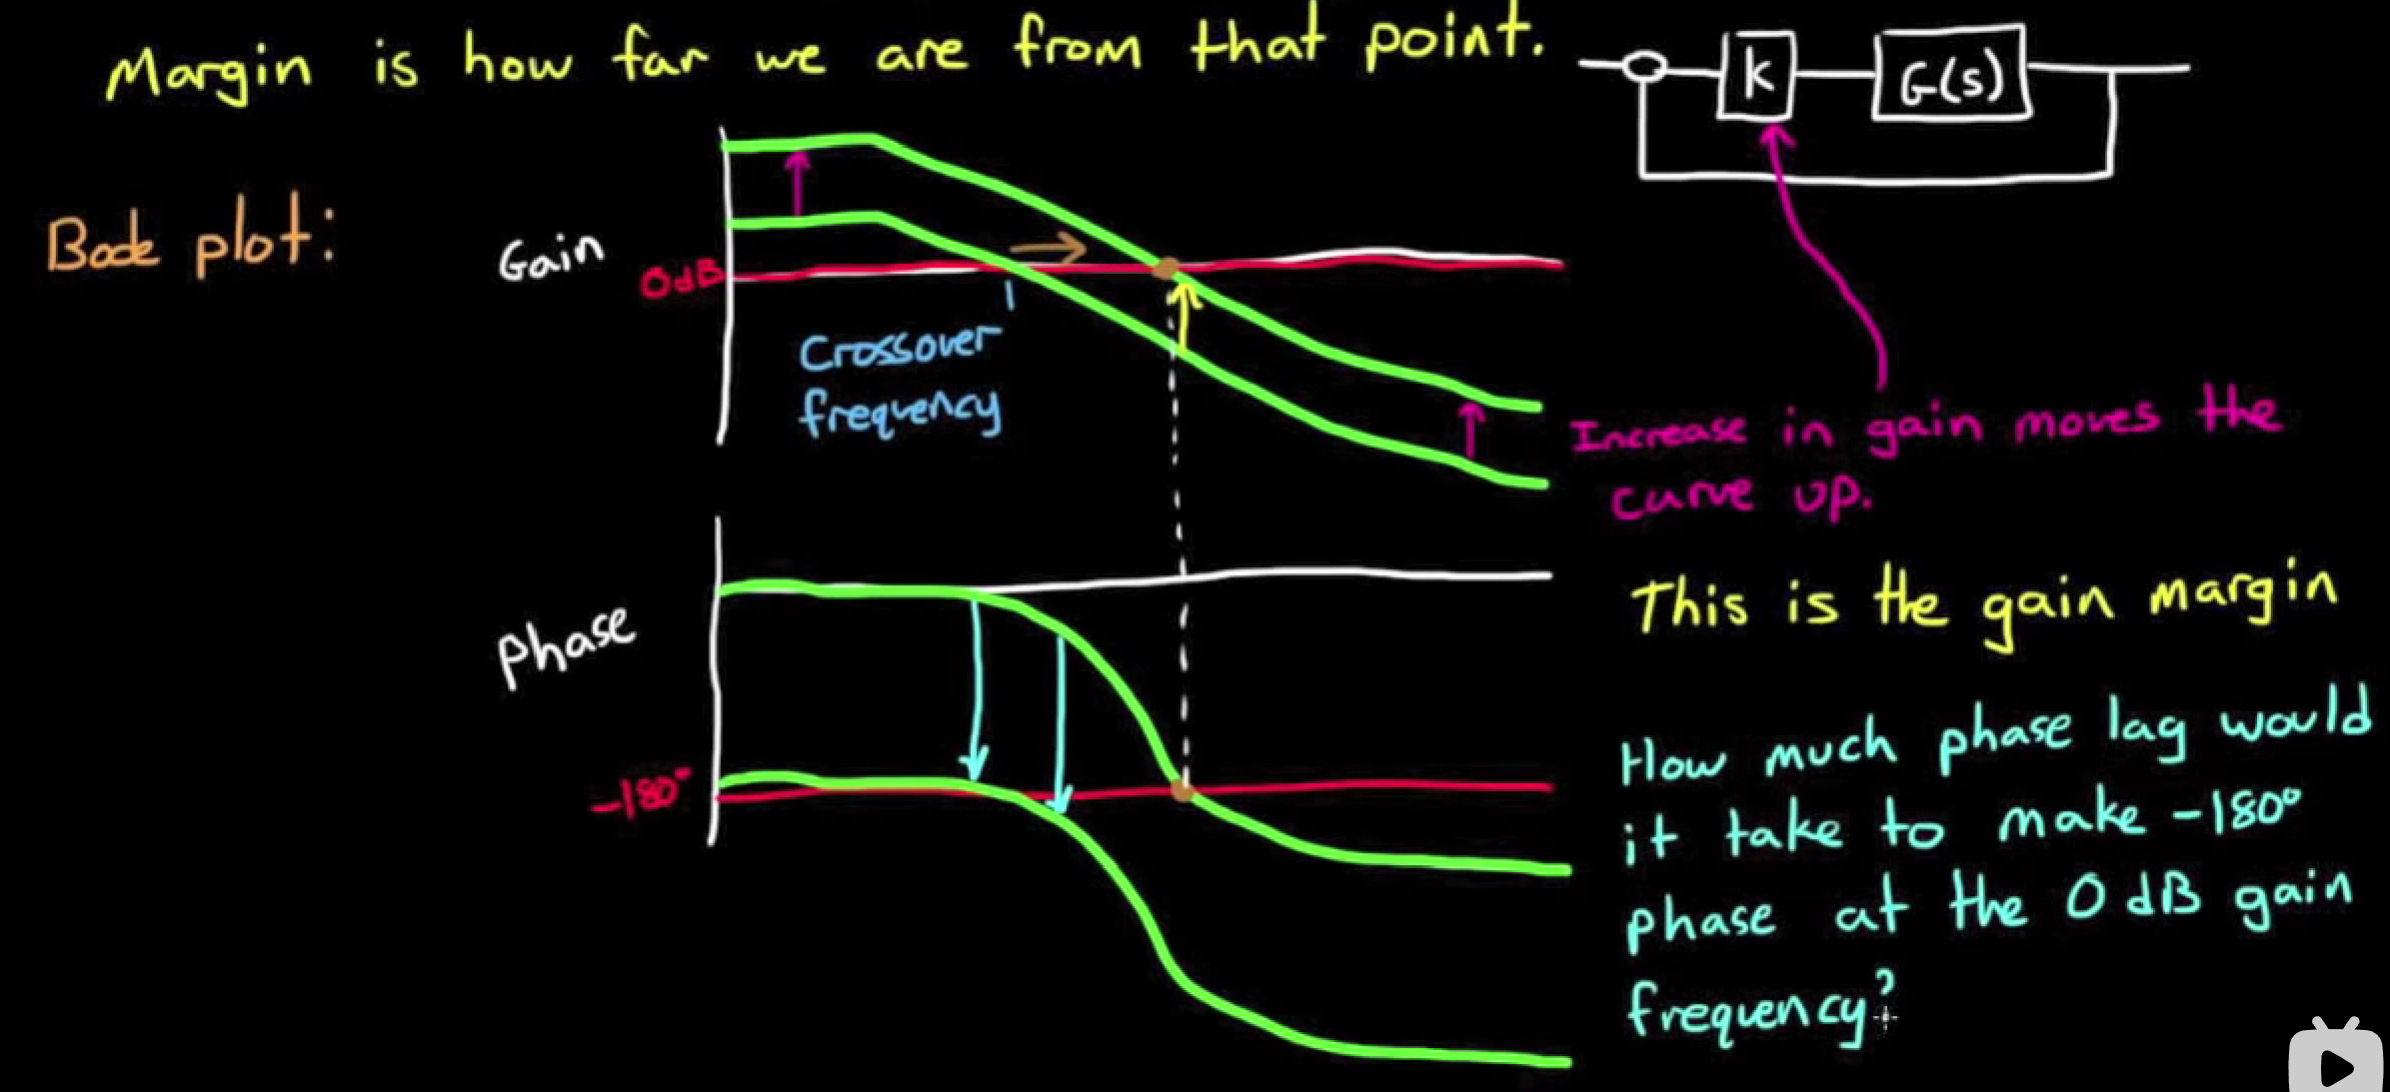 Margin is how far we are from that point.
K
G(s)
Bode plot:
Gain
0dB
Crossover
frequency
Increase in gain moves the
curve up.
Phase
-180°
This is the gain margin
How much phase lag would
it take to make -180°
phase at the 0 dB gain
frequency?